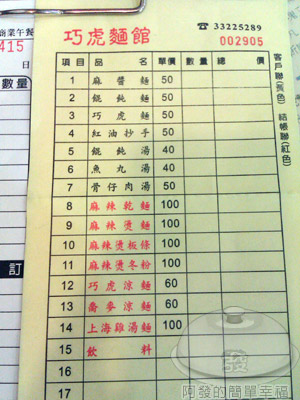 商業午餐
415
日
數量
訂
巧虎麵館
☎33225289
002905
項目 品名 單價 數量 總價
1 麻醬麵 50
2 餛飩麵 50
3 巧虎麵 50
4 紅油抄手 50
5 餛飩湯 40
6 魚丸湯 40
7 骨仔肉湯 50
8 麻辣乾麵 100
9 麻辣燙麵 100
10 麻辣燙板條 100
11 麻辣燙冬粉 100
12 巧虎涼麵 60
13 蕎麥涼麵 60
14 上海雞湯麵 100
15 飲料
16
17
客戶聯(黃色) 結帳聯(紅色)
發
阿發的簡單幸福